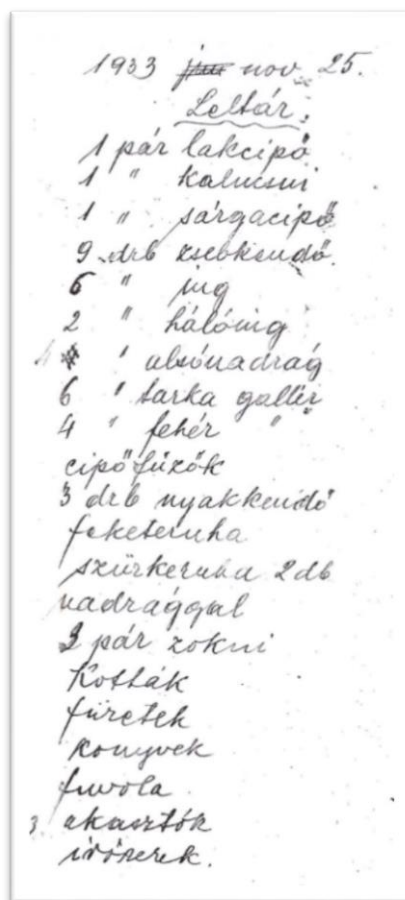 1933 nov. 25.
Leltár.
1 pár lakcipő
1 " kalucsni
1 " sárgacipő
9 drb zsebkendő.
6 " ing
2 " hálóing
4 " alsónadrág
6 " tarka gallér
4 " fehér "
cipőfűzők
3 drb nyakkendő
feketeruha
szürkeruha 2 db
nadrággal
3 pár zokni
Kották
füzetek
könyvek
fuvola
3 akasztók
írószerek.